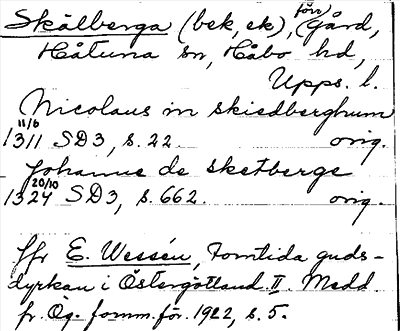 Skålberga (bek, ek), förr gård,
Håtuna sn, Håbo hd,
Upps. l.
Nicolaus in skiedberghum
11/6
1311 SD3, s. 22. orig.
Johanne de sketberge
20/10
1324 SD3, s. 662. orig.
Jfr E. Wessén, Forntida guds-
dyrkan i Östergötland II. Medd
fr. Ög. fornm.för. 1922, s. 5.